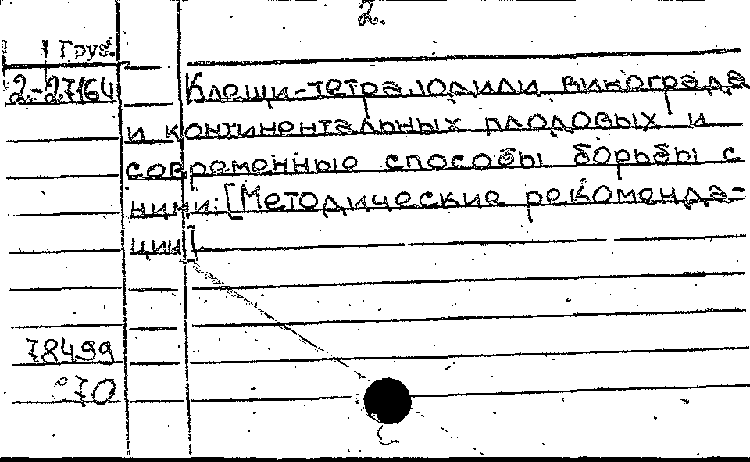 2.
Груз.
2-27164 Клещи-тетраподили винограда
и континентальных плодовых и
современные способы борьбы с
ними: [Методические рекоменда-
ции]
78499
70